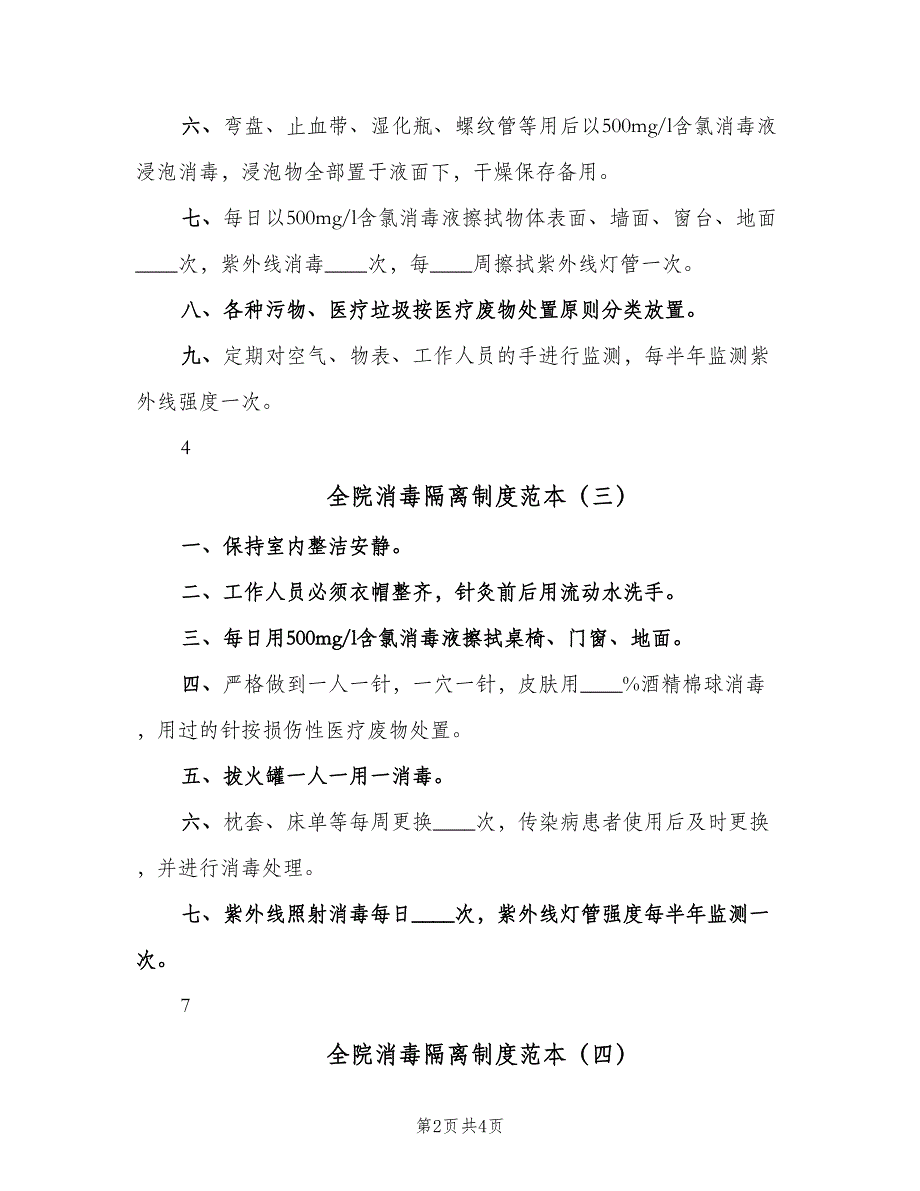 六、弯盘、止血带、湿化瓶、螺纹管等用后以500mg/l含氯消毒液
浸泡消毒，浸泡物全部置于液面下，干燥保存备用。
七、每日以500mg/l含氯消毒液擦拭物体表面、墙面、窗台、地面
____次，紫外线消毒____次，每____周擦拭紫外线灯管一次。
八、各种污物、医疗垃圾按医疗废物处置原则分类放置。
九、定期对空气、物表、工作人员的手进行监测，每半年监测紫
外线强度一次。
4
全院消毒隔离制度范本（三）
一、保持室内整洁安静。
二、工作人员必须衣帽整齐，针灸前后用流动水洗手。
三、每日用500mg/l含氯消毒液擦拭桌椅、门窗、地面。
四、严格做到一人一针，一穴一针，皮肤用____%酒精棉球消毒
，用过的针按损伤性医疗废物处置。
五、拔火罐一人一用一消毒。
六、枕套、床单等每周更换____次，传染病患者使用后及时更换
，并进行消毒处理。
七、紫外线照射消毒每日____次，紫外线灯管强度每半年监测一
次。
7
全院消毒隔离制度范本（四）
第2页 共4页